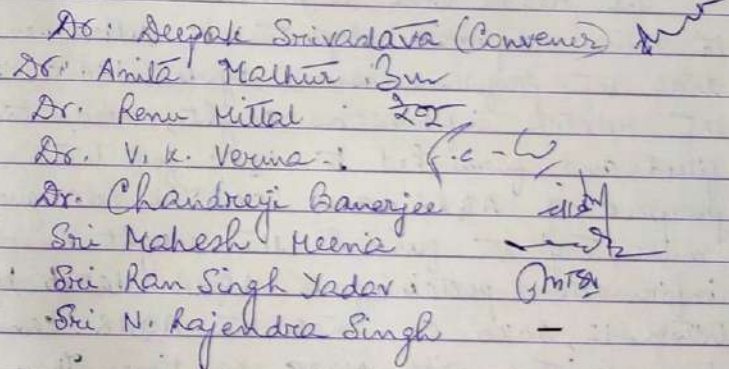 Dr. Deepak Srivadava (Convener)
Dr. Anita Mathur :
Dr. Renu Mittal : रेणु
Dr. V. K. Verma :
Dr. Chandreyi Banerjee
Sri Mahesh Meena
Sri Ran Singh Yadav :
Sri N. Rajendra Singh -